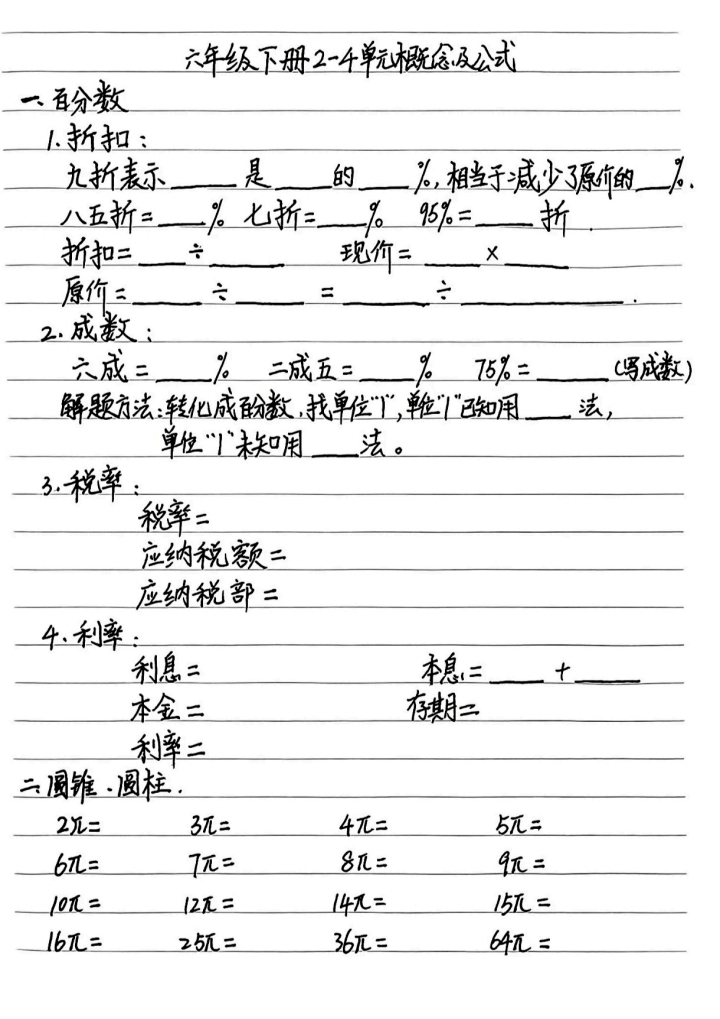 六年级下册2-4单元概念及公式
一、百分数
1.折扣：
九折表示____是____的____%，相当于减少了原价的____%.
八五折=____% 七折=____% 95%=____折.
折扣=____÷____ 现价=____×____
原价=____÷____=____÷____.
2.成数：
六成=____% 二成五=____% 75%=____(写成数)
解题方法：转化成百分数，找单位"1"，单位"1"已知用____法，
单位"1"未知用____法。
3.税率：
税率=
应纳税额=
应纳税部=
4.利率：
利息= 本息=____+____
本金= 存期=
利率=
二、圆锥、圆柱.
2π= 3π= 4π= 5π=
6π= 7π= 8π= 9π=
10π= 12π= 14π= 15π=
16π= 25π= 36π= 64π=